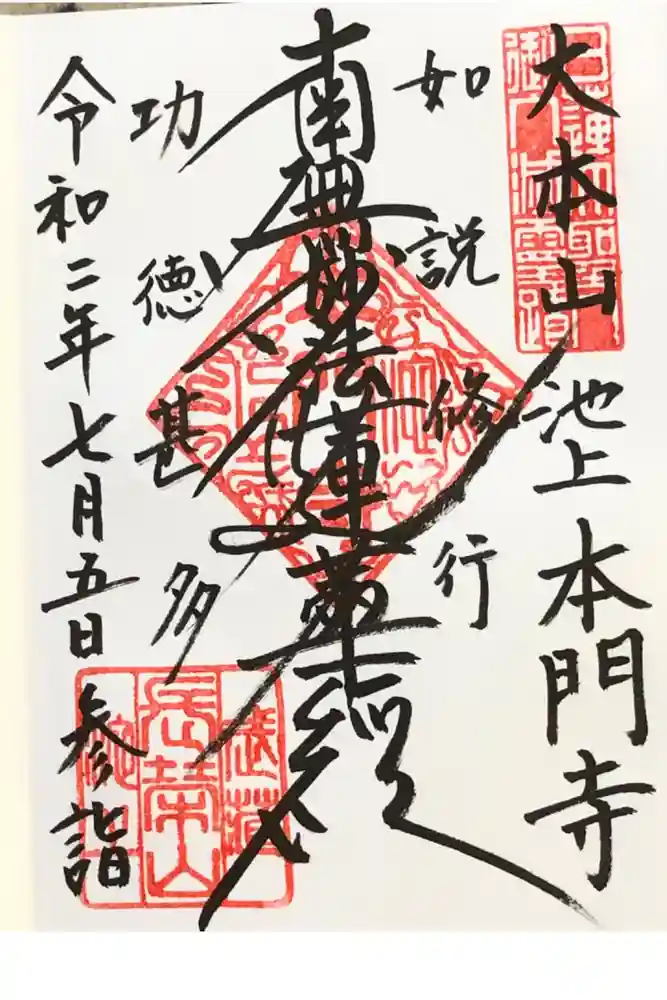 大本山 池上本門寺
如説修行
南無妙法蓮華経
功徳甚多
令和二年七月五日 参詣
長栄山